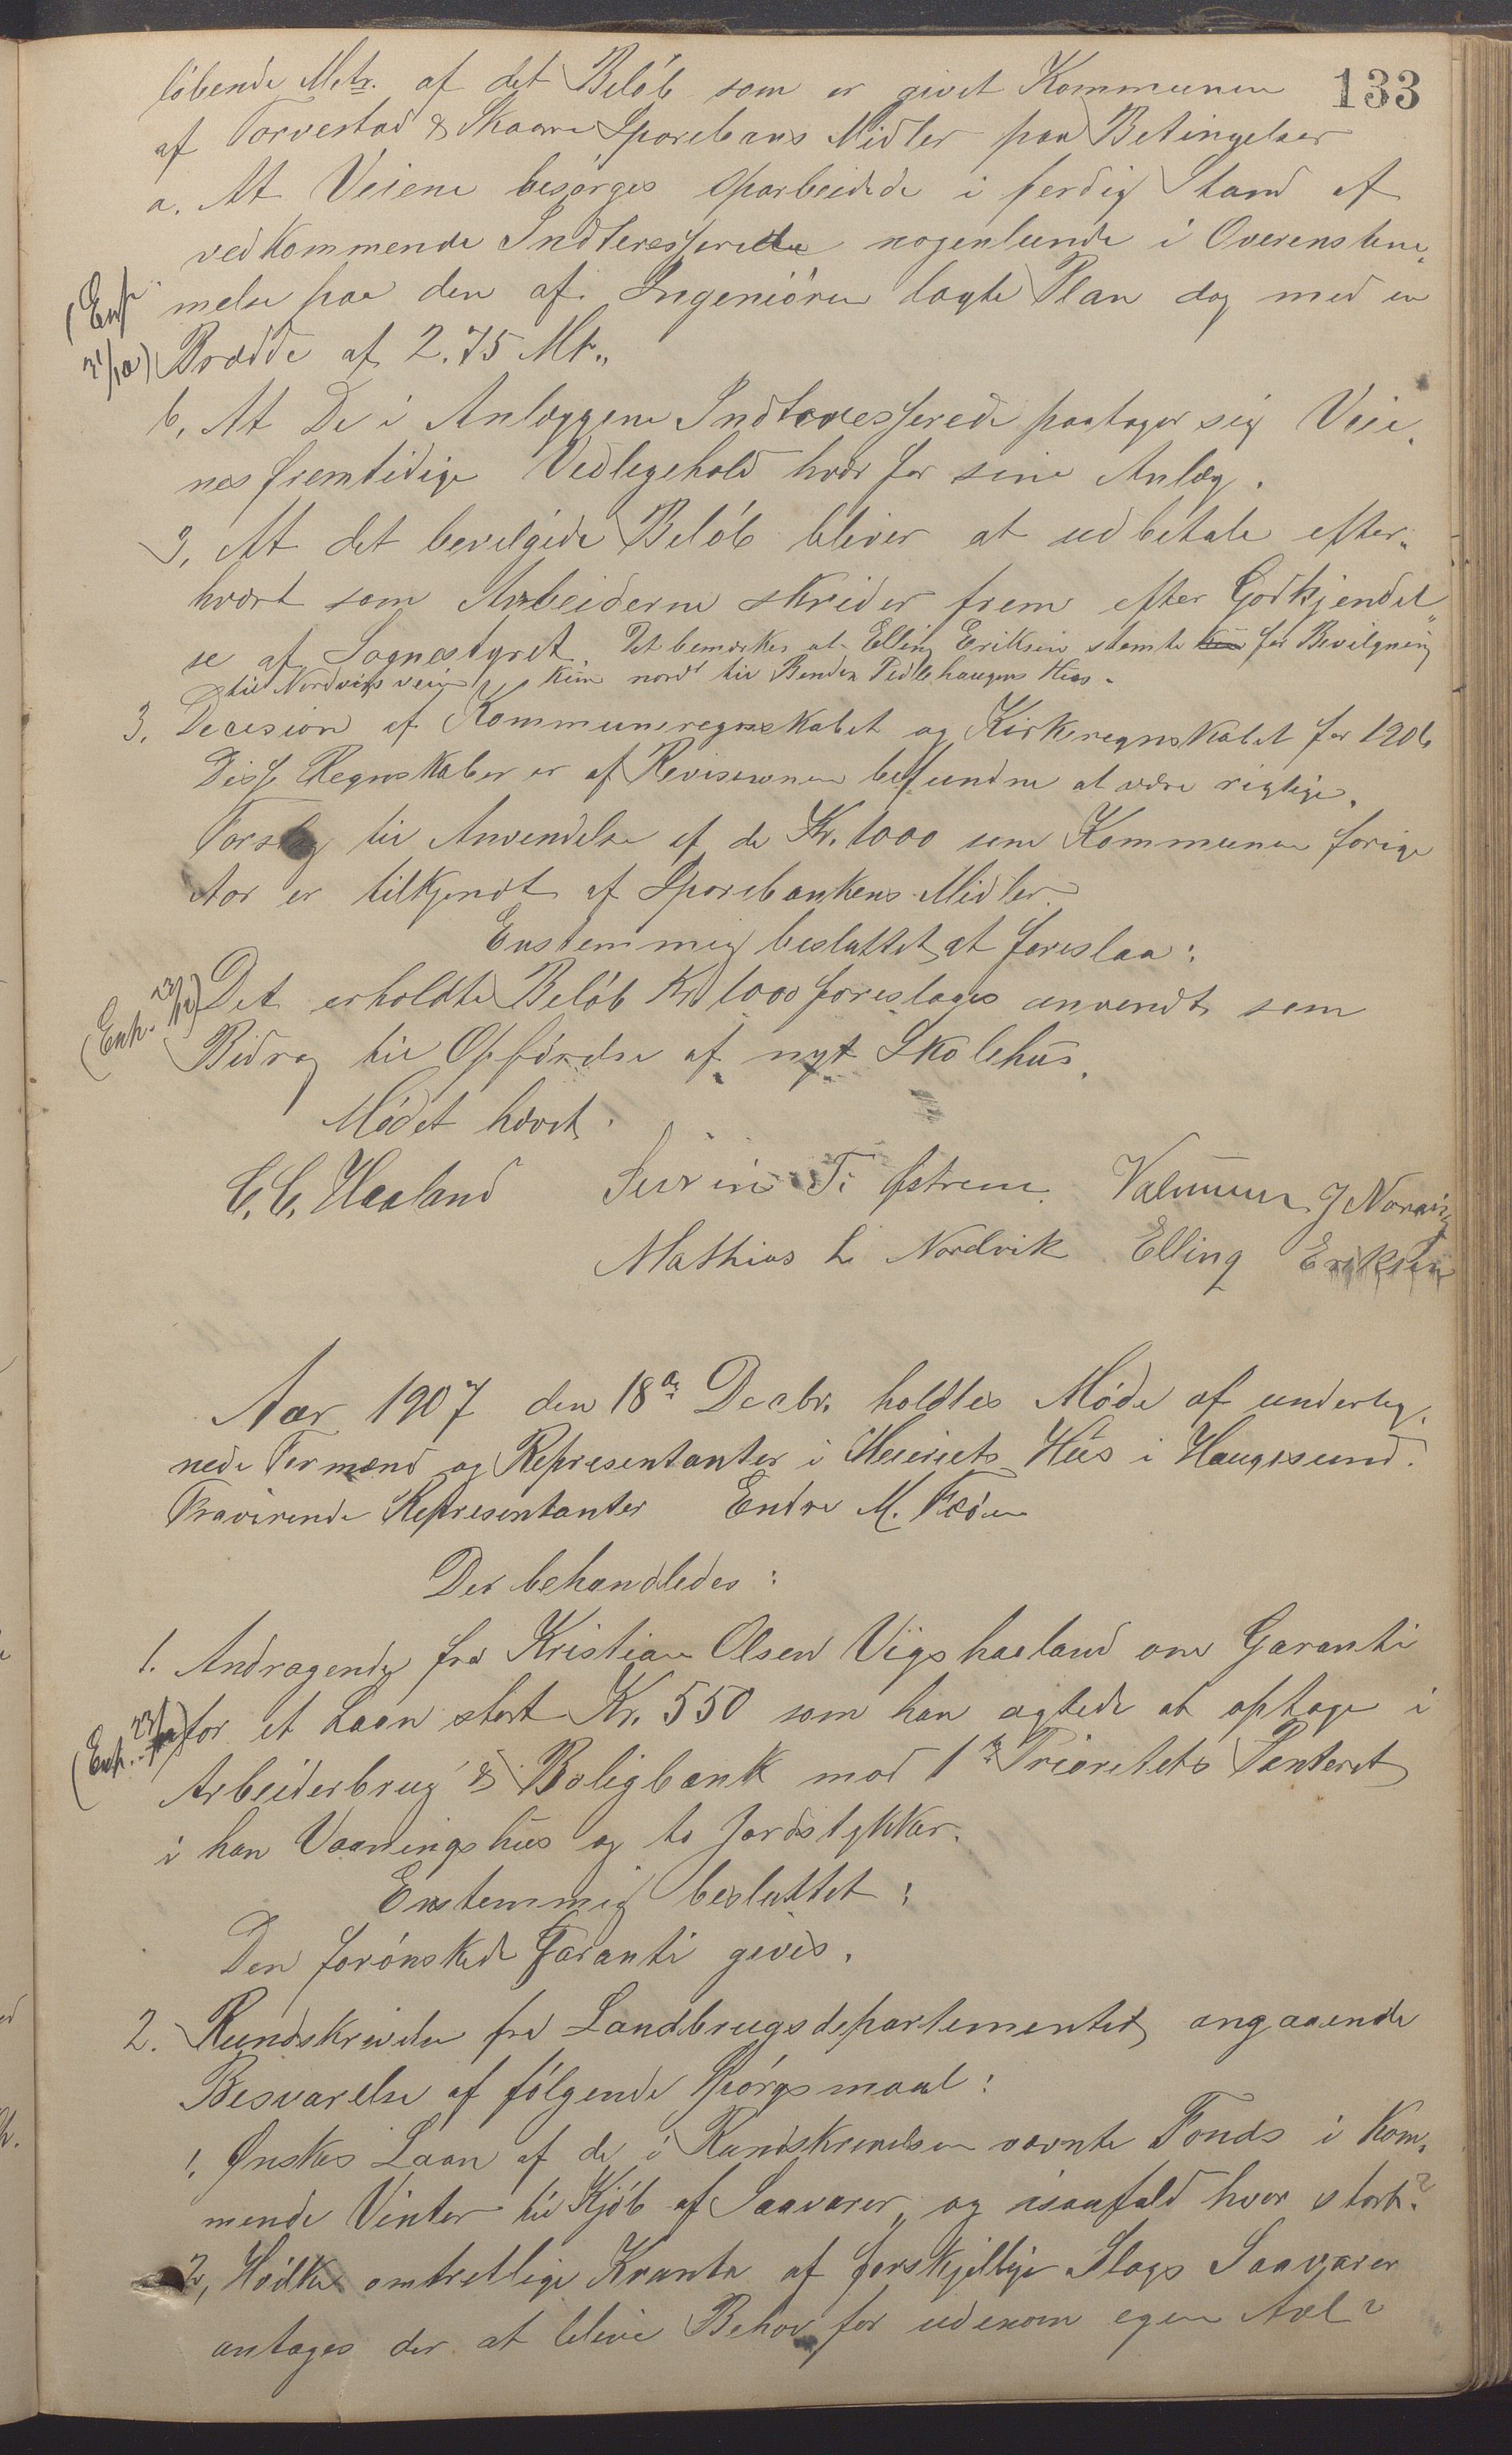 133
löbende Metr. af det Beløb som er givet Kommunen
af Torvestad & Skaare Sparebans Midler paa Betingelser
a. At Veiene besørges oparbeidede i ferdig Stand af
vedkommende Indteresserede nogenlunde i Overenstem,
melse paa den af Ingeniøren lagte Plan dog med en
(Ensp.
31/12)
Brædde af 2.75 Mtr.,
b, At De i Anlæggene Indteresserede paatager sig Veie,
nes fremtidige Vedlegehold hvær for sine Anlæg.
3, At det bevilgede Beløb bliver at udbetale efter,,
hvært som Arbeiderne skrider frem efter Godkjendel,,
se af Sognestyret. Det bemærkes at Elling Eriksen stemte kun for Bevilgning
til Nordviks veien kun nord til Benden Fedlehaugens Hus.
3. Decision af Kommuneregnskabet og Kirkeregnskabet for 1906
Disse Regnskaber er af Revisionen befundne at være rigtige.
Forslag til Anvendelse af de Kr. 1000 som Kommunen forige
Aar er tilkjendt af Sparebankens Midler.
Enstemmig besluttet at foreslaa:
(Exp. 23/12)
Det erholdte Beløb Kr 1000 foreslages anvendt som
Bidrag til Opførelse af nyt Skolehus.
Mødet hævet.
C. C. Haaland Sivert T. Østrem Valentin J Norvig
Mathias L Nordvik Elling Eriksen
Aar 1907 den 18de Decbr. holdtes Møde af underteg,
nede Formænd og Representanter i Meieriets Hus i Haugesund.
Fraværende Representanter Endre M. Fröen
Der behandledes:
1. Andragende fra Kristian Olsen Vigshaaland om Garanti
(Exp. 23/12)
for et Laan stort Kr. 550 som han agtede at optage i
Arbeiderbrug & Boligbank mod 1ste Prioritets Panteret
i han Vaaningshus og to Jordstykker.
Enstemmig besluttet:
Den forønskede Garanti gives.
2. Rundskrivelse fra Landbrugsdepartementet angaaende
Besvarelse af følgende Spørgsmaal:
1. Ønskes Laan af de i Rundskrivelsen nævnte Fonds i kom,
mende Vinter til Kjøb af Saavarer, og isaafald hvor stort?
2, Hvilke omtretlige Kvanta af forskjellige Slags Saavarer
antages der at blive Behov for udenom egen Avl?